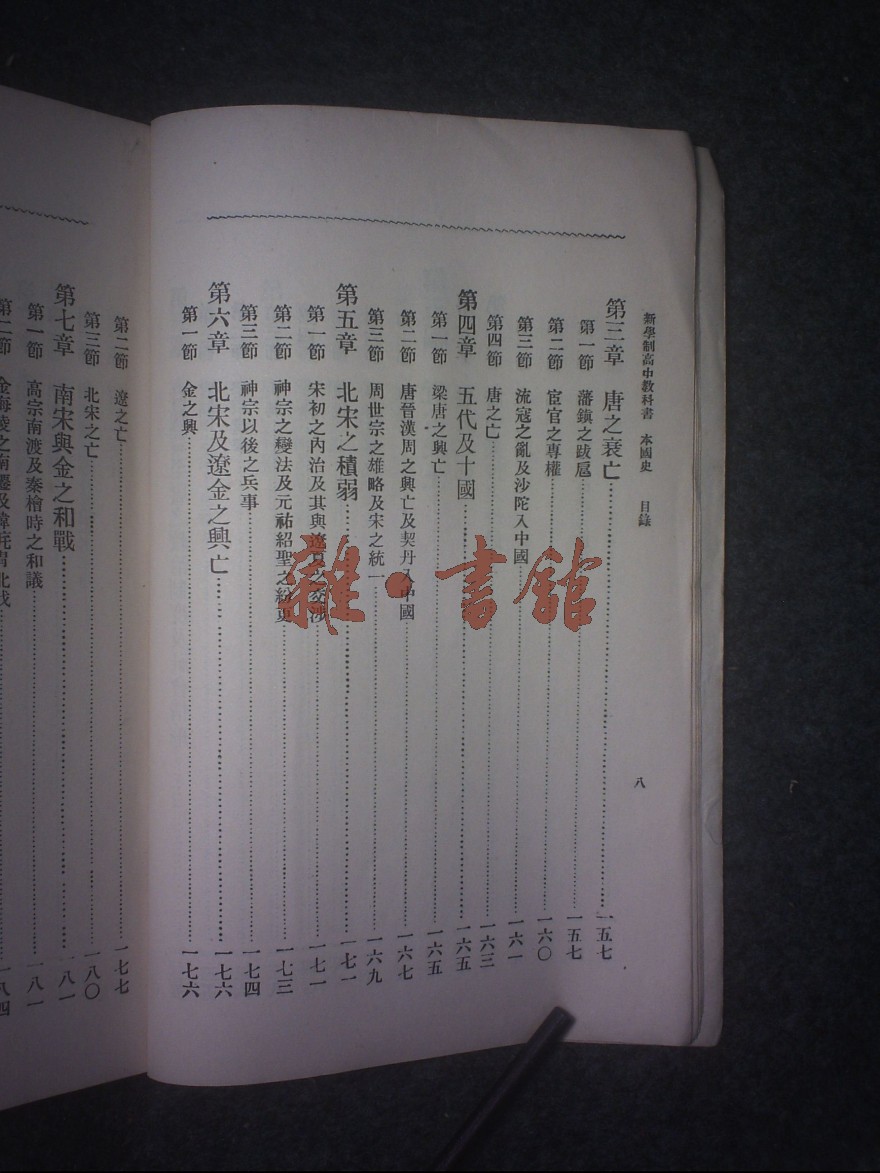 新學制高中教科書 本國史 目錄 八
第三章 唐之衰亡 一五七
第一節 藩鎮之跋扈 一五七
第二節 宦官之専權 一六〇
第三節 流寇之亂及沙陀入中國 一六一
第四節 唐之亡 一六三
第四章 五代及十國 一六五
第一節 梁唐之興亡 一六五
第二節 唐晉漢周之興亡及契丹入中國 一六七
第三節 周世宗之雄略及宋之統一 一六九
第五章 北宋之積弱 一七一
第一節 宋初之內治及其與遼夏之交涉 一七一
第二節 神宗之變法及元祐紹聖之紛更 一七三
第三節 神宗以後之兵事 一七四
第六章 北宋及遼金之興亡 一七六
第一節 金之興 一七六
第二節 遼之亡 一七七
第三節 北宋之亡 一八〇
第七章 南宋與金之和戰 一八一
第一節 高宗南渡及秦檜時之和議 一八一
第二節 金海陵之南遷及韓侂冑北伐 一八四
雜·書館